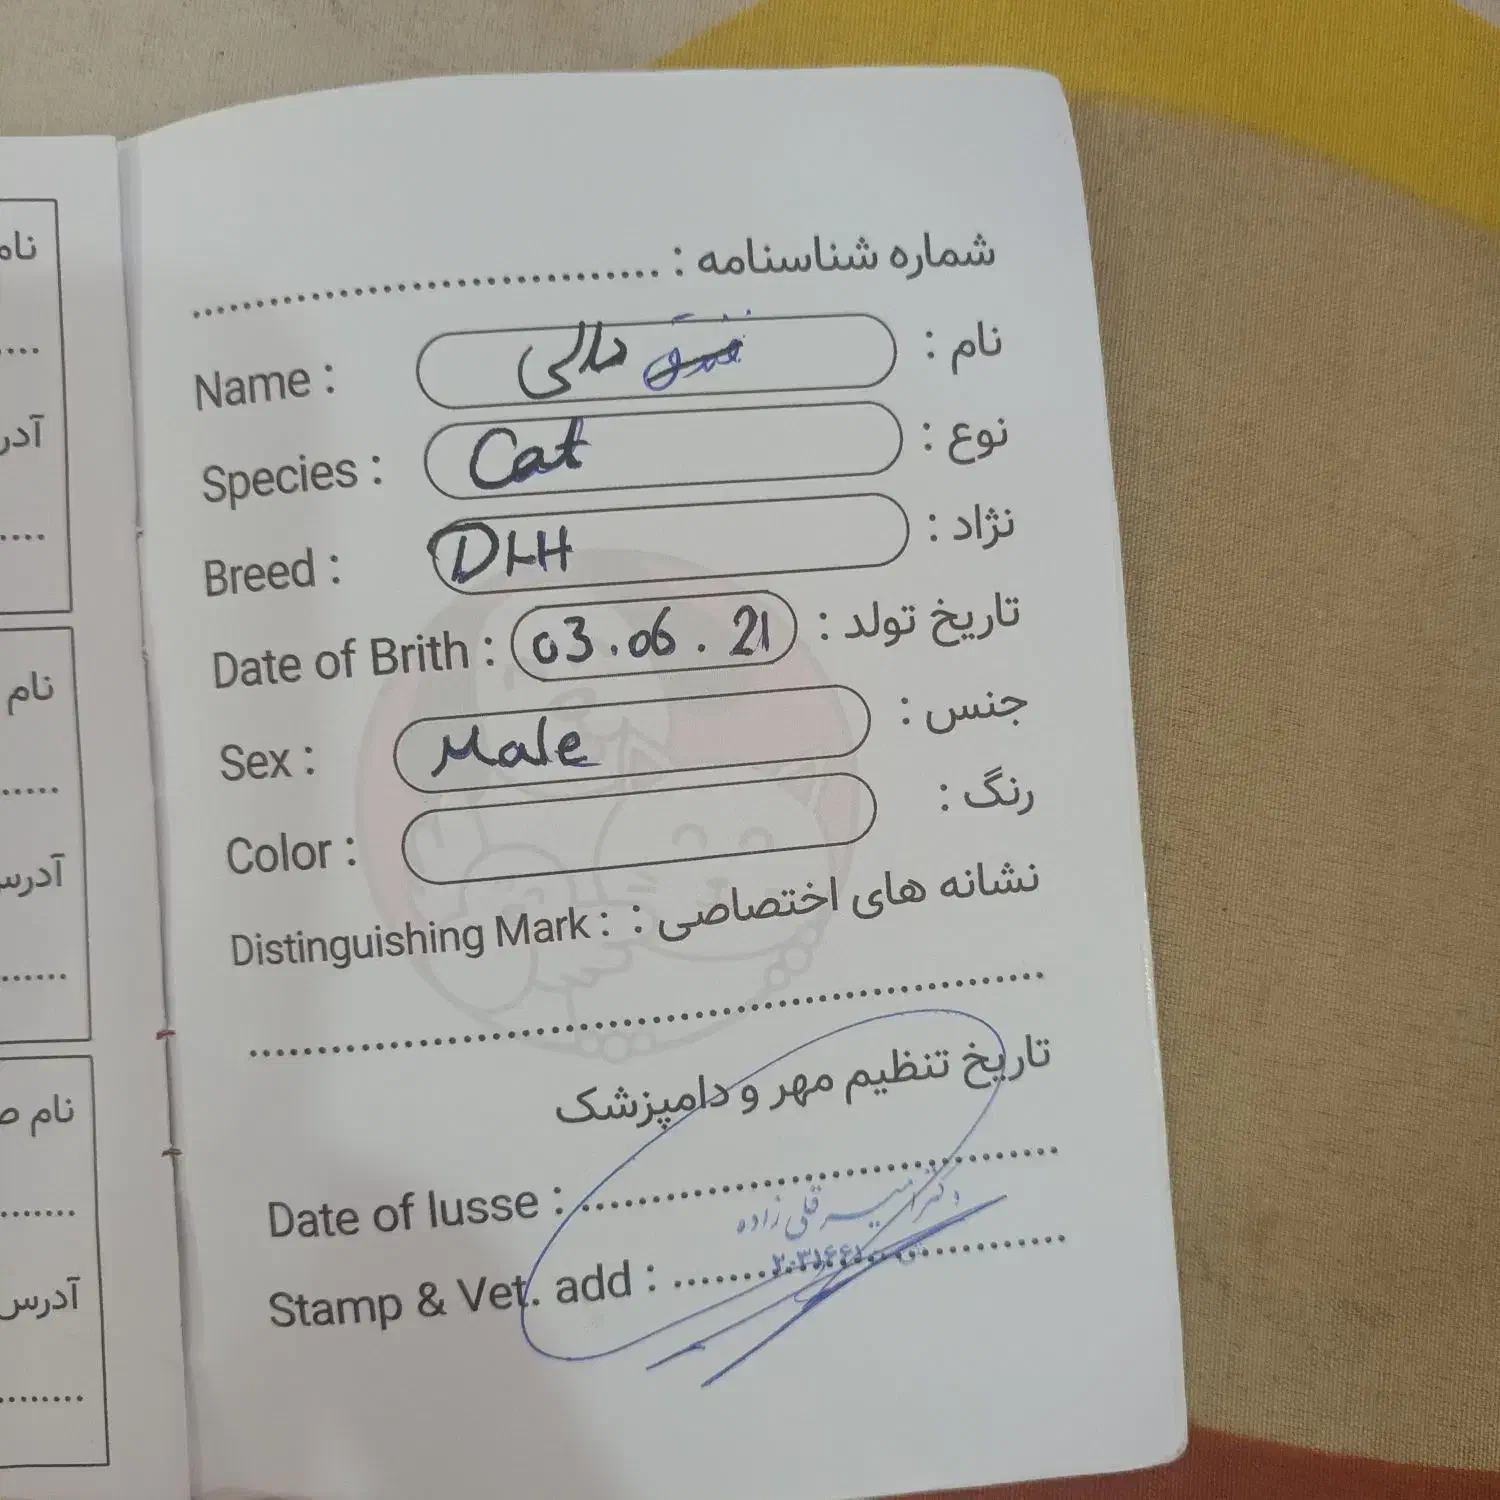 شماره شناسنامه : ..............................
Name : دالی نام :
Species : Cat نوع :
Breed : DLH نژاد :
Date of Brith : 03.06.21 تاریخ تولد :
Sex : Male جنس :
Color : رنگ :
Distinguishing Mark : نشانه های اختصاصی :
تاریخ تنظیم مهر و دامپزشک
Date of Iusse :
Stamp & Vet. add :
نام
آدرس
نام
آدرس
نام
آدرس